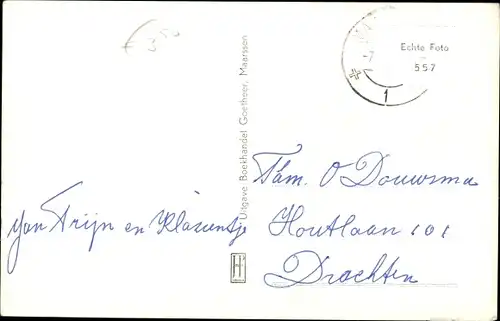 Echte Foto
557
Uitgave Boekhandel Goetheer, Maarssen
Fam. O Douwsma
Houtlaan 101
Drachten
van Trijn en Klasientje
H
1
-7